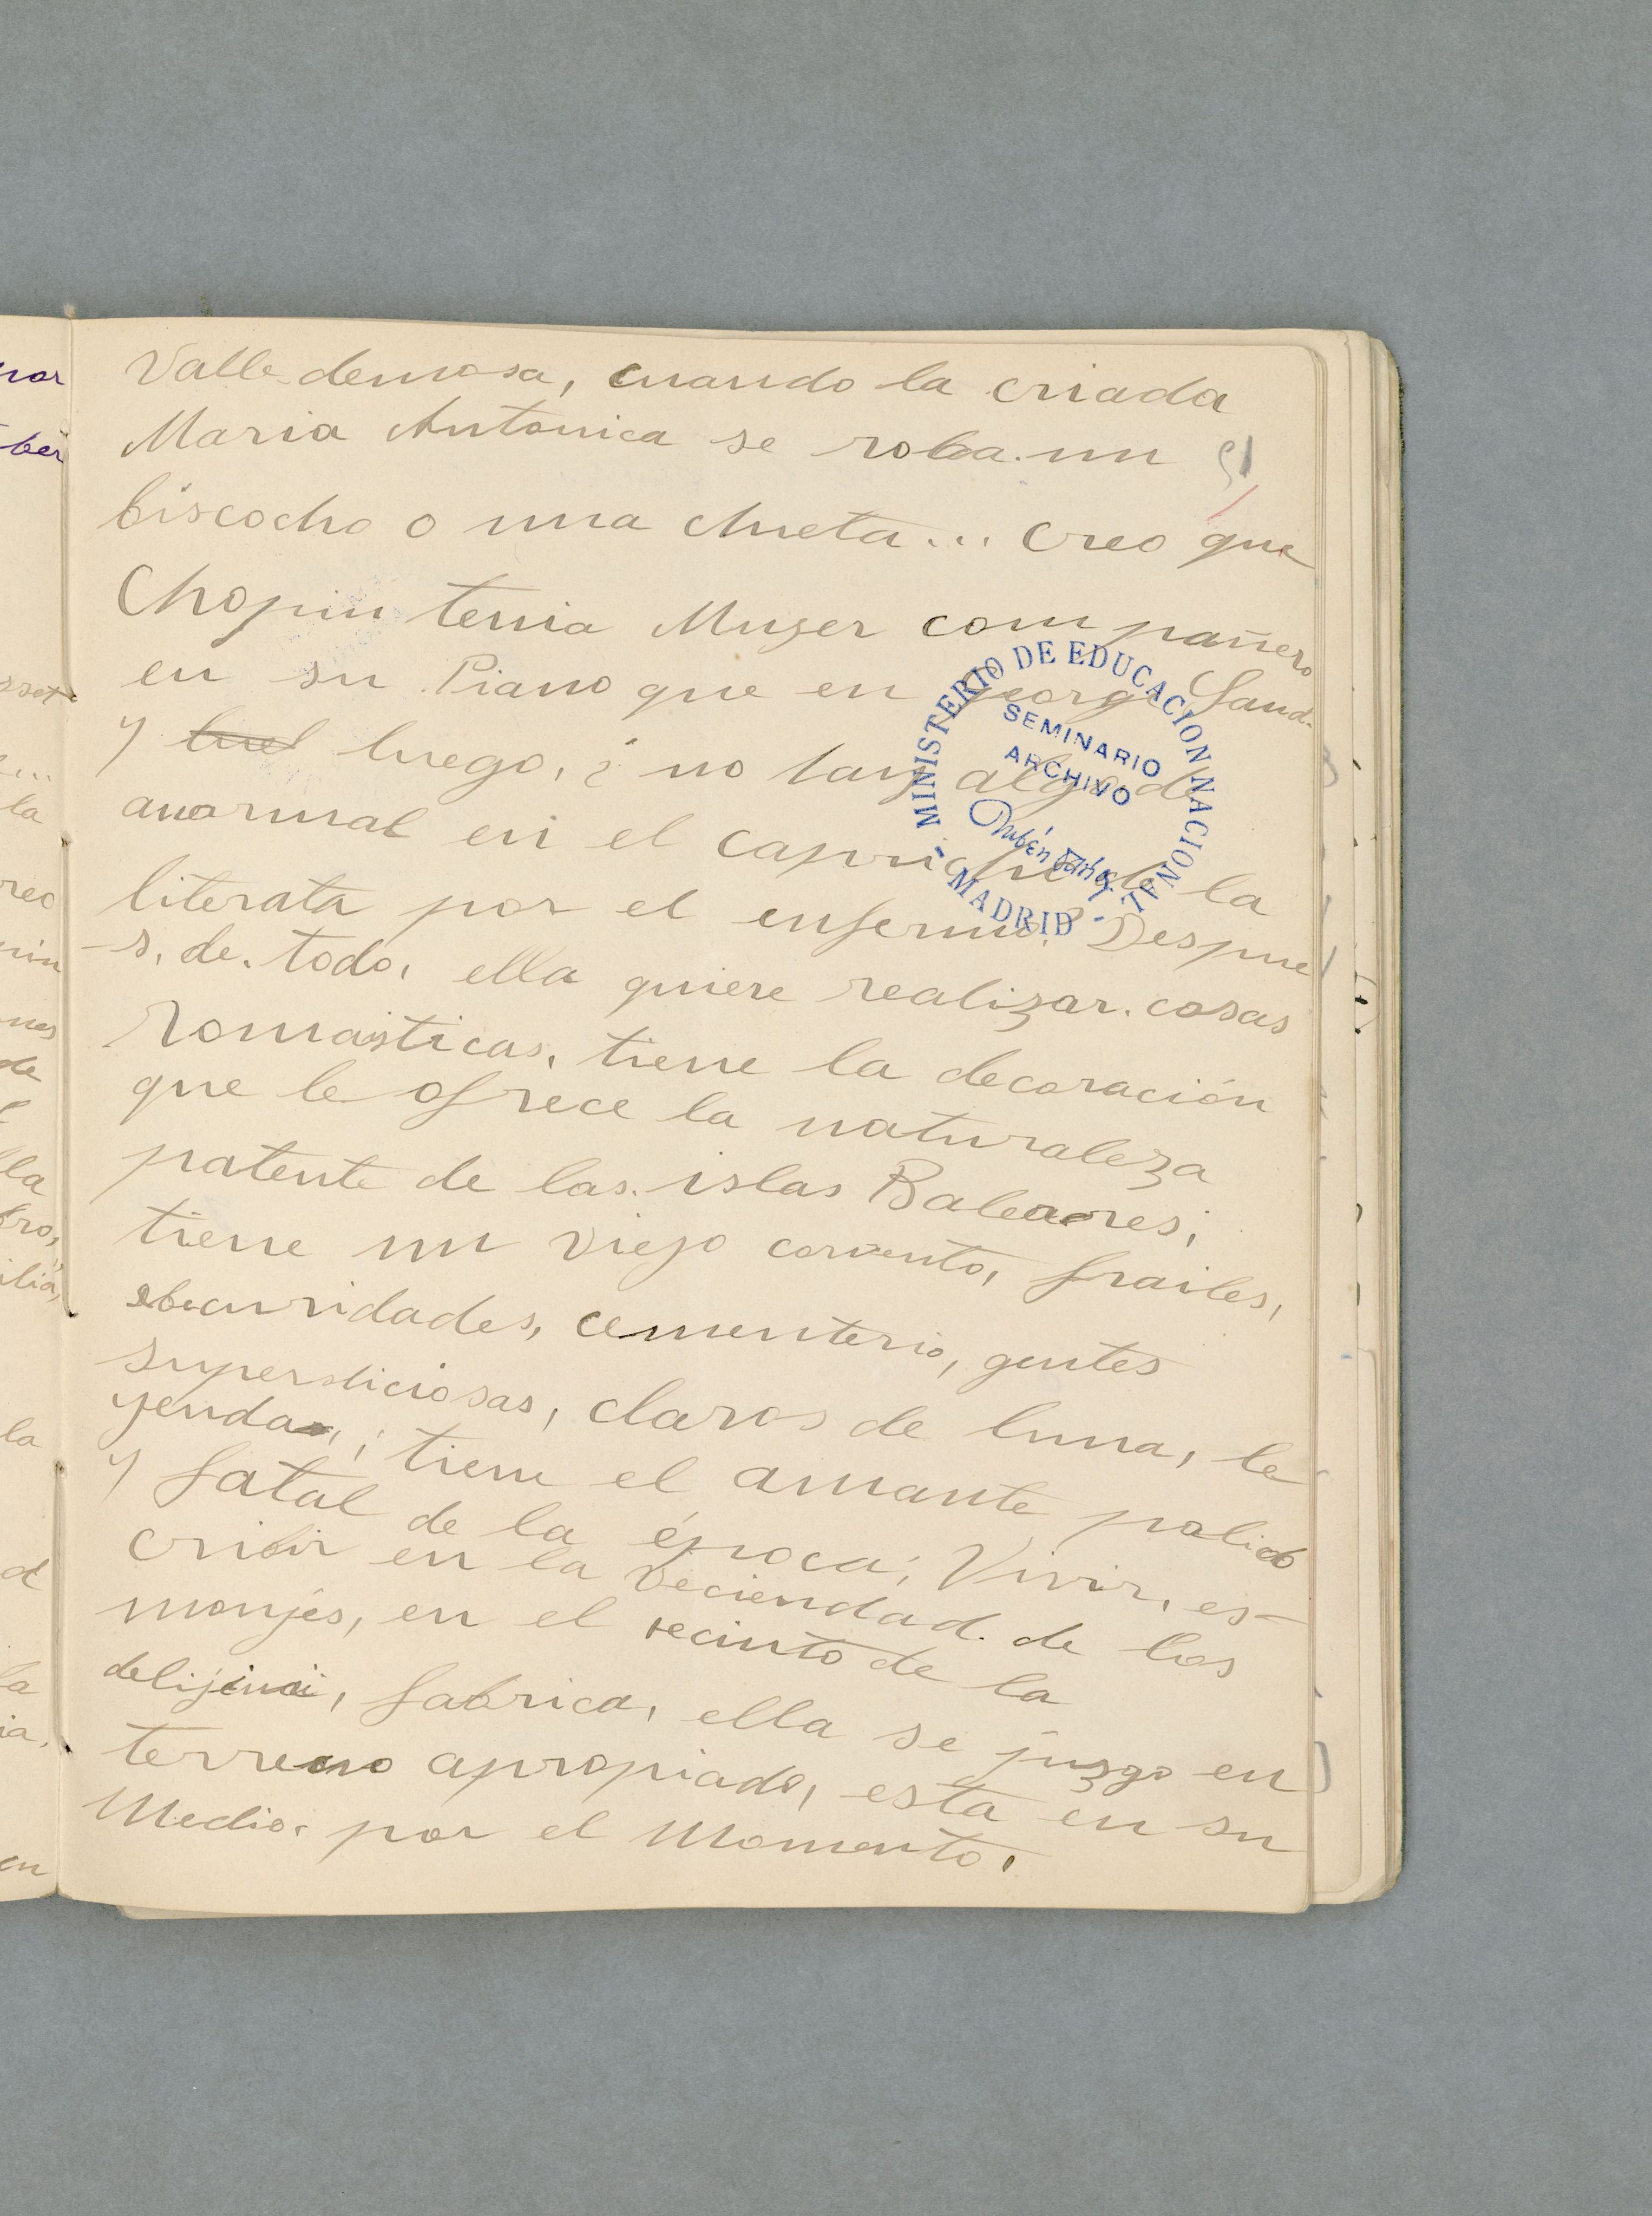 Valledemosa, cuando la criada
Maria Antonica se roba un
biscocho o una chueta... Creo que
Chopin tenia Muger compañero
en su Piano que en george Sand.
y luel luego, ¿ no hay algo de
anormal en el capricho de la
literata por el enfermo? Despue
-s, de. todo, ella quiere realizar. cosas
Romasticas, tiene la decoración
que le ofrece la naturaleza
patente de las. islas Baleares;
tiene un viejo convento, frailes,
obscuridades, cementerio, gentes
superdiciosas, claros de luna, le
yendas,; tiene el amante palido
y fatal de la época; Vivir, es-
cribir en la veciendad. de los
monjes, en el recinto de la
fabrica, ella se juzga en
terreno apropiado, esta en su
Medio. por el Momento.
MINISTERIO DE EDUCACION NACIONAL
- MADRID -
SEMINARIO
ARCHIVO
Rubén Darío
por
la
de
la
la
d
la
en